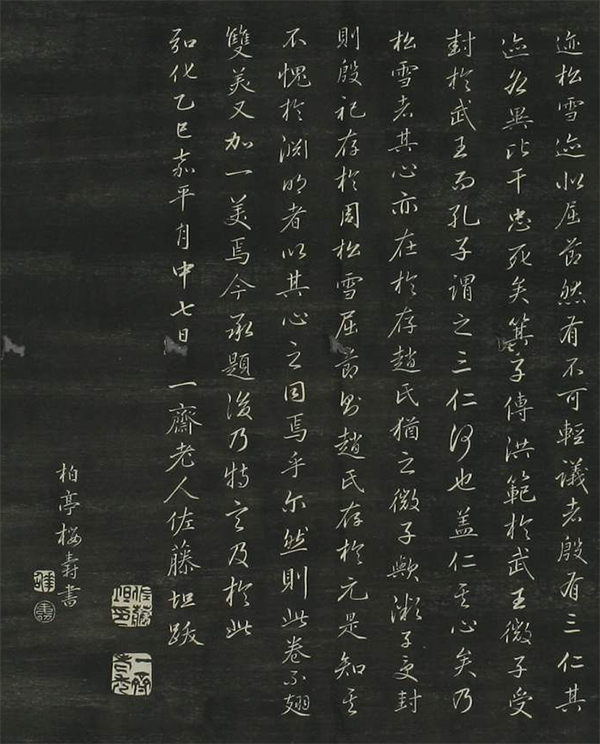 迹松雪迹似屈節然有不可輕議者殷有三仁其
迹各異比干忠死矣箕子傳洪範於武王微子受
封於武王而孔子謂之三仁何也蓋仁其心矣乃
松雪者其心亦在於存趙氏猶之微子歟微子受封
則殷祀存於周松雪屈節則趙氏存於元是知其
不愧於淵明者以其心之同焉乎尔然則此卷不翅
雙美又加一美焉今承題後乃特言及於此
弘化乙巳嘉平月中七日 一齋老人佐藤坦跋
柏亭壽書